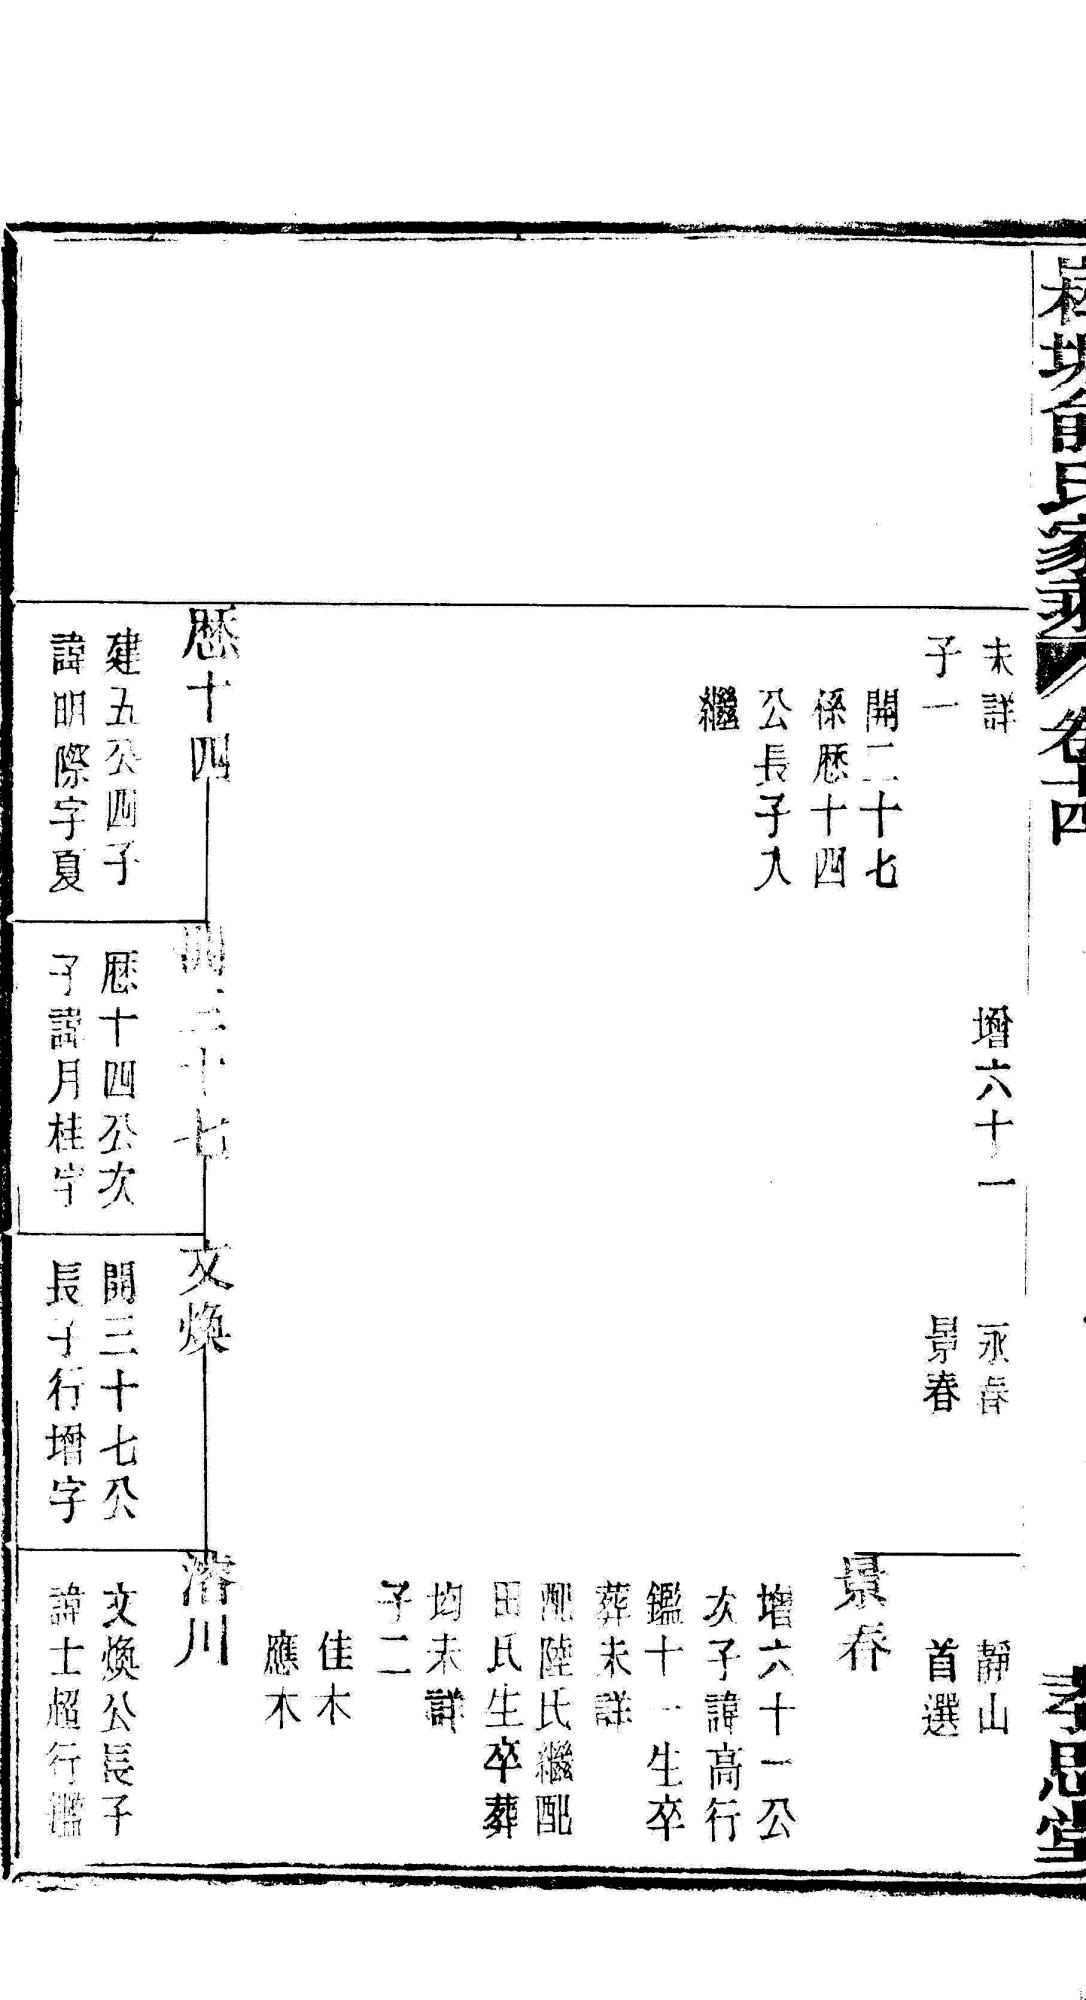 俞氏家乘
卷十四
孝思堂
未詳
子一
開二十七
係歷十四
公長子入
繼
增六十一
永春
景春
靜山
首選
景春
增六十一公
次子諱高行
鑑十一生卒
葬未詳
配陸氏繼配
田氏生卒葬
均未詳
子二
佳木
應木
歷十四
建五公四子
諱明際字夏
開三十七
歷十四公次
子諱月桂字
文煥
開三十七公
長子行增字
濬川
文煥公長子
諱士超行鑑